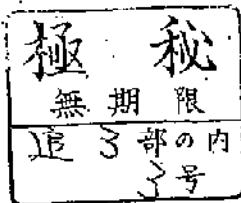 極秘
無期限
追3部の内
3号